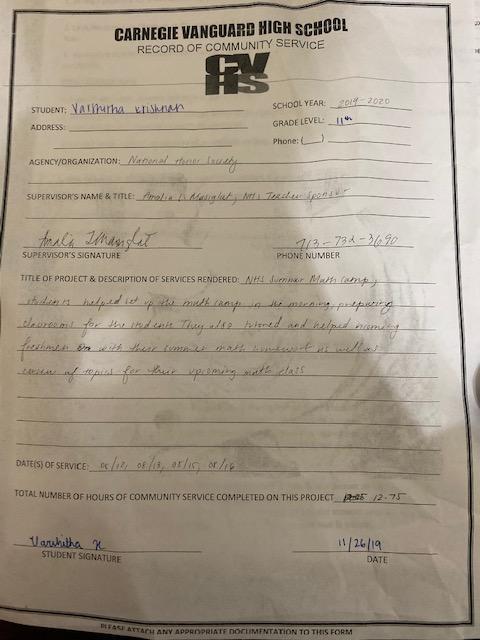 CARNEGIE VANGUARD HIGH SCHOOL
RECORD OF COMMUNITY SERVICE
CV
HS
STUDENT: Varshitha Krishnan
SCHOOL YEAR: 2019-2020
ADDRESS:
GRADE LEVEL: 11th
Phone: ( )
AGENCY/ORGANIZATION: National Honor Society
SUPERVISOR'S NAME & TITLE: Amalia NHS Teacher Sponsor
Amalia
713-732-3690
SUPERVISOR'S SIGNATURE
PHONE NUMBER
TITLE OF PROJECT & DESCRIPTION OF SERVICES RENDERED: NHS Summer Math Camp;
students helped set up the math camp in the morning, preparing
classrooms for the students. They also tutored and helped incoming
freshmen with their summer math homework as well as
review of topics for their upcoming math class
DATE(S) OF SERVICE: 08/12, 08/13, 08/15, 08/16
TOTAL NUMBER OF HOURS OF COMMUNITY SERVICE COMPLETED ON THIS PROJECT 12.75
Varshitha K
11/26/19
STUDENT SIGNATURE
DATE
PLEASE ATTACH ANY APPROPRIATE DOCUMENTATION TO THIS FORM